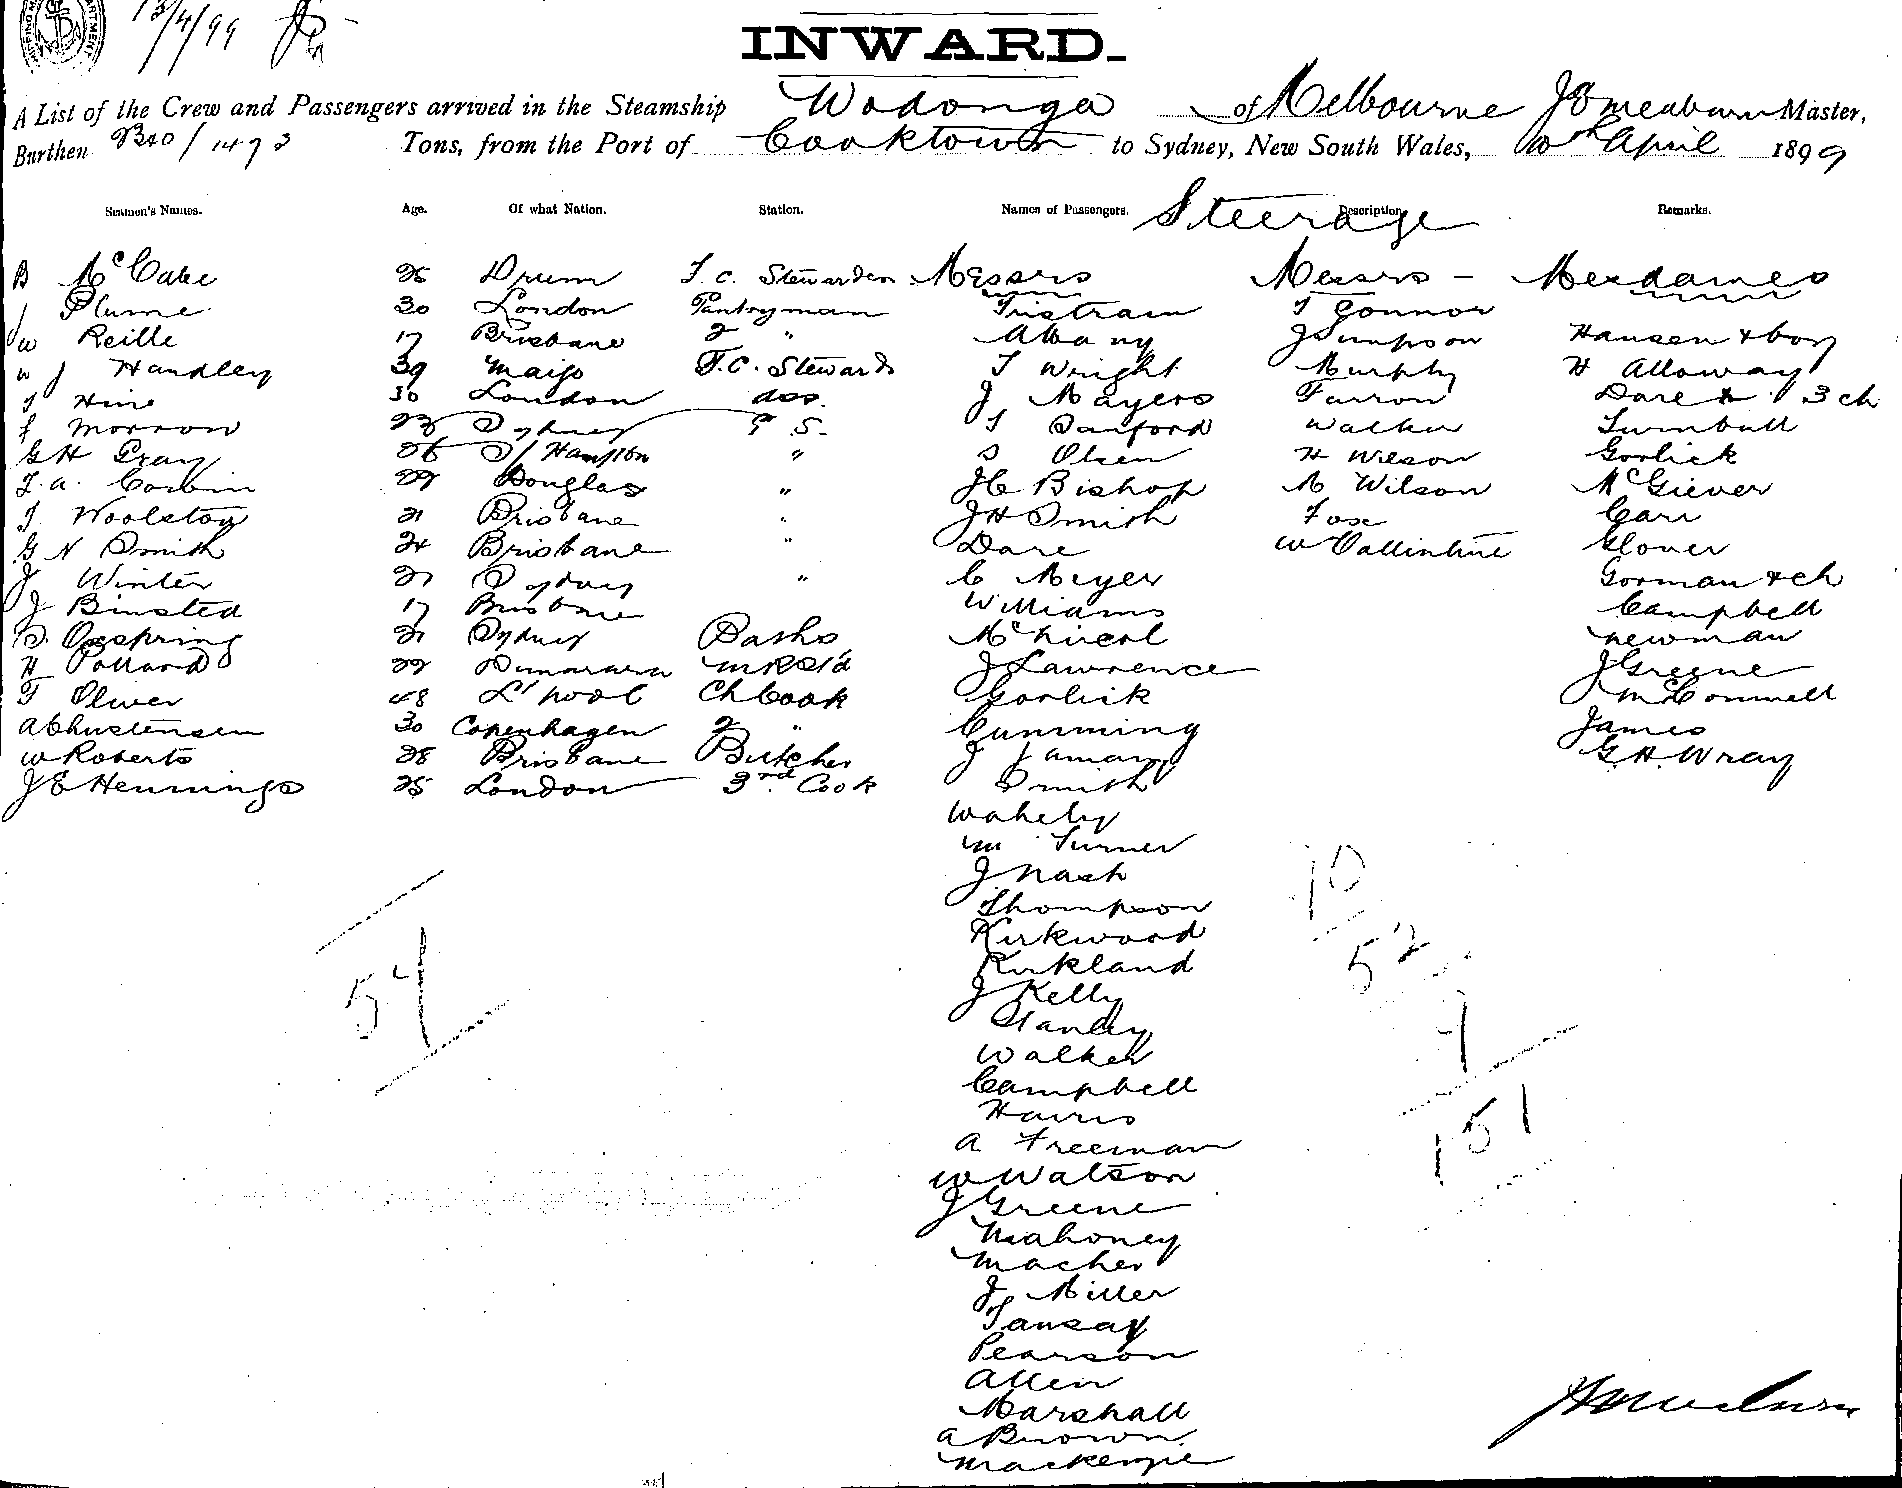 13/4/99
INWARD.
A List of the Crew and Passengers arrived in the Steamship Wodonga of Melbourne Master,
Burthen 1473 Tons, from the Port of Cooktown to Sydney, New South Wales, 10th April 1899
Seamen's Names. Age. Of what Nation. Station. Names of Passengers. Steerage Description. Remarks.
B McCabe 26 Drum Stewardess Messrs Messrs - Mesdames
J Plume 30 London Pantryman Tristram T Connor
W Reille 17 Brisbane 2 " Albany J Simpson Hansen & boy
W J Handley 39 Mayo F.C. Steward T Wright Murphy H Alloway
T Hine 30 London ass. J Mayers Farron Dare & 3 ch
F Morrow 23 Sydney S. T Sanford Walker Turnbull
G H Gray 26 S/Hampton " S Olsen H Wilson Gorlick
T. A. Corbin 29 Douglas " J C Bishop M Wilson McGiever
T Woolston 21 Brisbane " J H Smith Fox Carr
G N Smith 24 Brisbane " Dare W Vallintine Glover
J Winter 21 Sydney " C Meyer Gorman & ch
J Binsted 17 Brisbane Williams Campbell
S. Oxspring 21 Sydney Baths McNicol Newman
H Pollard 29 J Lawrence J Greene
T Oliver 48 L'pool Ch Cook Gorlick McConnell
A Chustensen 30 Copenhagen 2 " Cumming James
W Roberts 28 Brisbane Butcher J Jamary G. H. Wray
J E Hennings 25 London 3rd Cook Smith
Wakely
M Turner
J Nash
Thompson
Kirkwood
Kirkland
J Kelly
Stanley
Walker
Campbell
Harris
A Freeman
W Watson
J Greene
Mahoney
Macher
J Miller
Tansay
Pearson
Allen
Marshall
A Brown
Mackenzie
54
10
52
1
151